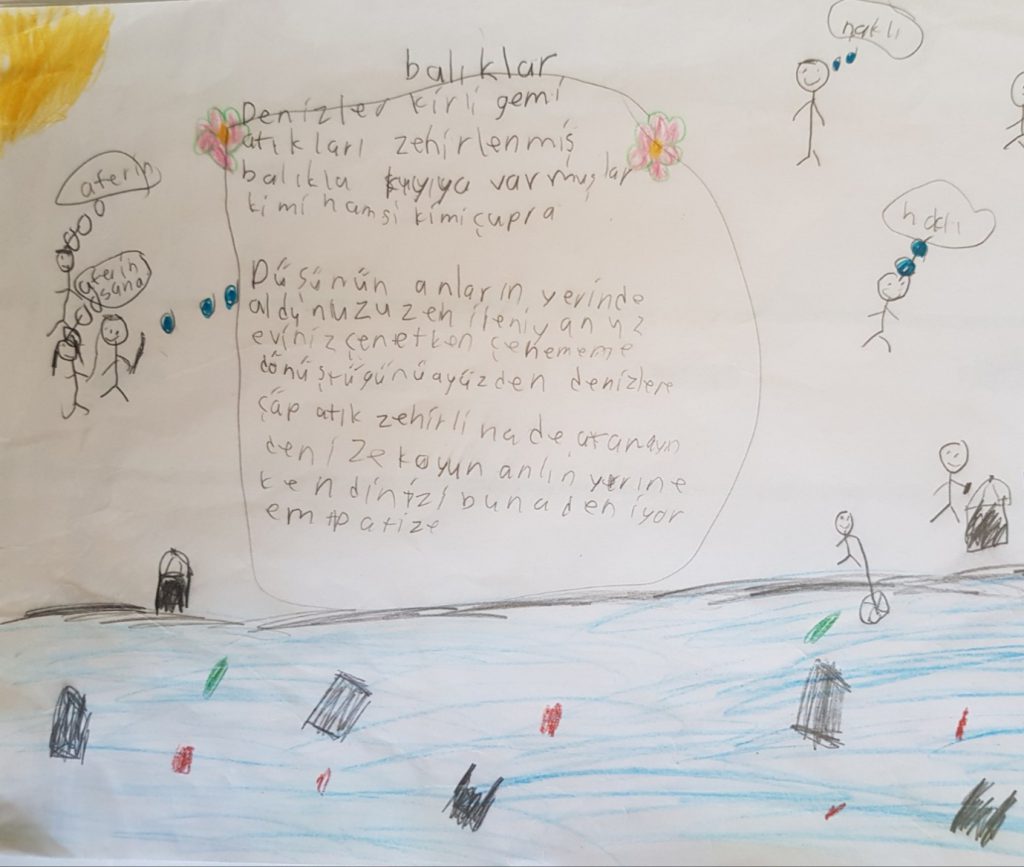 balıklar
Denizler kirli gemi
atıkları zehirlenmiş
balıkla kıyıya varmışlar
kimi hamsi kimi çupra
Düşünün anların yerinde
aldynuzu zehirleniyanyz
eviniz çenetken cehememe
dönüştüğünü ayüzden denizlere
çäp atık zehirli nade atanayın
denize koyun anlın yerine
kendinizi buna deniyor
empatize
aferin
aferin
sana
haklı
haklı